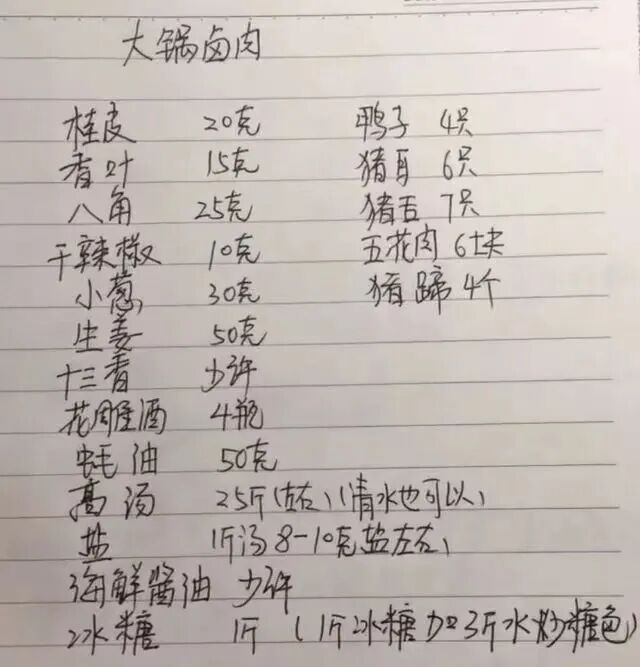 大锅卤肉
桂皮 20克 鸭子 4只
香叶 15克 猪耳 6只
八角 25克 猪舌 7只
干辣椒 10克 五花肉 6块
小葱 30克 猪蹄 4个
生姜 50克
十三香 少许
花雕酒 4瓶
蚝油 50克
高汤 25斤(左右)(清水也可以)
盐 1斤汤8-10克盐左右)
海鲜酱油 少许
冰糖 1斤 (1斤冰糖加3斤水炒糖色)